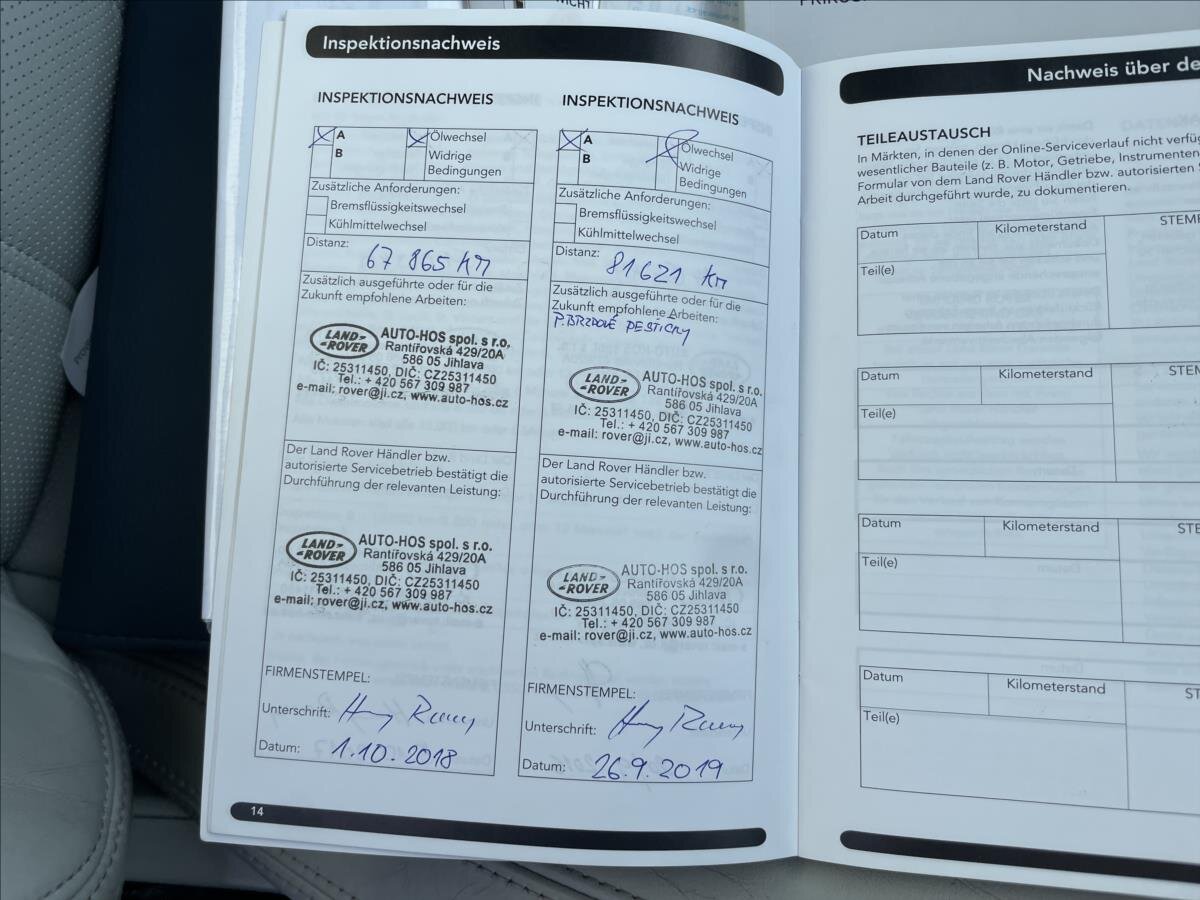 NICHT
Inspektionsnachweis
INSPEKTIONSNACHWEIS
A
Ölwechsel
B
Widrige
Bedingungen
Zusätzliche Anforderungen:
Bremsflüssigkeitswechsel
Kühlmittelwechsel
Distanz:
67 865 KM
Zusätzlich ausgeführte oder für die
Zukunft empfohlene Arbeiten:
LAND-
-ROVER
AUTO-HOS spol. s r.o.
Rantířovská 429/20A
586 05 Jihlava
IČ: 25311450, DIČ: CZ25311450
Tel.: + 420 567 309 987
e-mail: rover@ji.cz, www.auto-hos.cz
Der Land Rover Händler bzw.
autorisierte Servicebetrieb bestätigt die
Durchführung der relevanten Leistung:
LAND-
-ROVER
AUTO-HOS spol. s r.o.
Rantířovská 429/20A
586 05 Jihlava
IČ: 25311450, DIČ: CZ25311450
Tel.: + 420 567 309 987
e-mail: rover@ji.cz, www.auto-hos.cz
FIRMENSTEMPEL:
Unterschrift:
Datum: 1.10.2018
14
INSPEKTIONSNACHWEIS
A
Ölwechsel
B
Widrige
Bedingungen
Zusätzliche Anforderungen:
Bremsflüssigkeitswechsel
Kühlmittelwechsel
Distanz:
81621 KM
Zusätzlich ausgeführte oder für die
Zukunft empfohlene Arbeiten:
P. BRZDOVÉ DESTIČKY
LAND-
-ROVER
AUTO-HOS spol. s r.o.
Rantířovská 429/20A
586 05 Jihlava
IČ: 25311450, DIČ: CZ25311450
Tel.: + 420 567 309 987
e-mail: rover@ji.cz, www.auto-hos.cz
Der Land Rover Händler bzw.
autorisierte Servicebetrieb bestätigt die
Durchführung der relevanten Leistung:
LAND-
-ROVER
AUTO-HOS spol. s r.o.
Rantířovská 429/20A
586 05 Jihlava
IČ: 25311450, DIČ: CZ25311450
Tel.: + 420 567 309 987
e-mail: rover@ji.cz, www.auto-hos.cz
FIRMENSTEMPEL:
Unterschrift:
Datum: 26.9.2019
Nachweis über de
TEILEAUSTAUSCH
In Märkten, in denen der Online-Serviceverlauf nicht verfü
wesentlicher Bauteile (z. B. Motor, Getriebe, Instrumenten
Formular von dem Land Rover Händler bzw. autorisierten S
Arbeit durchgeführt wurde, zu dokumentieren.
Datum
Kilometerstand
STEMP
Teil(e)
Datum
Kilometerstand
STEM
Teil(e)
Datum
Kilometerstand
STE
Teil(e)
Datum
Kilometerstand
ST
Teil(e)